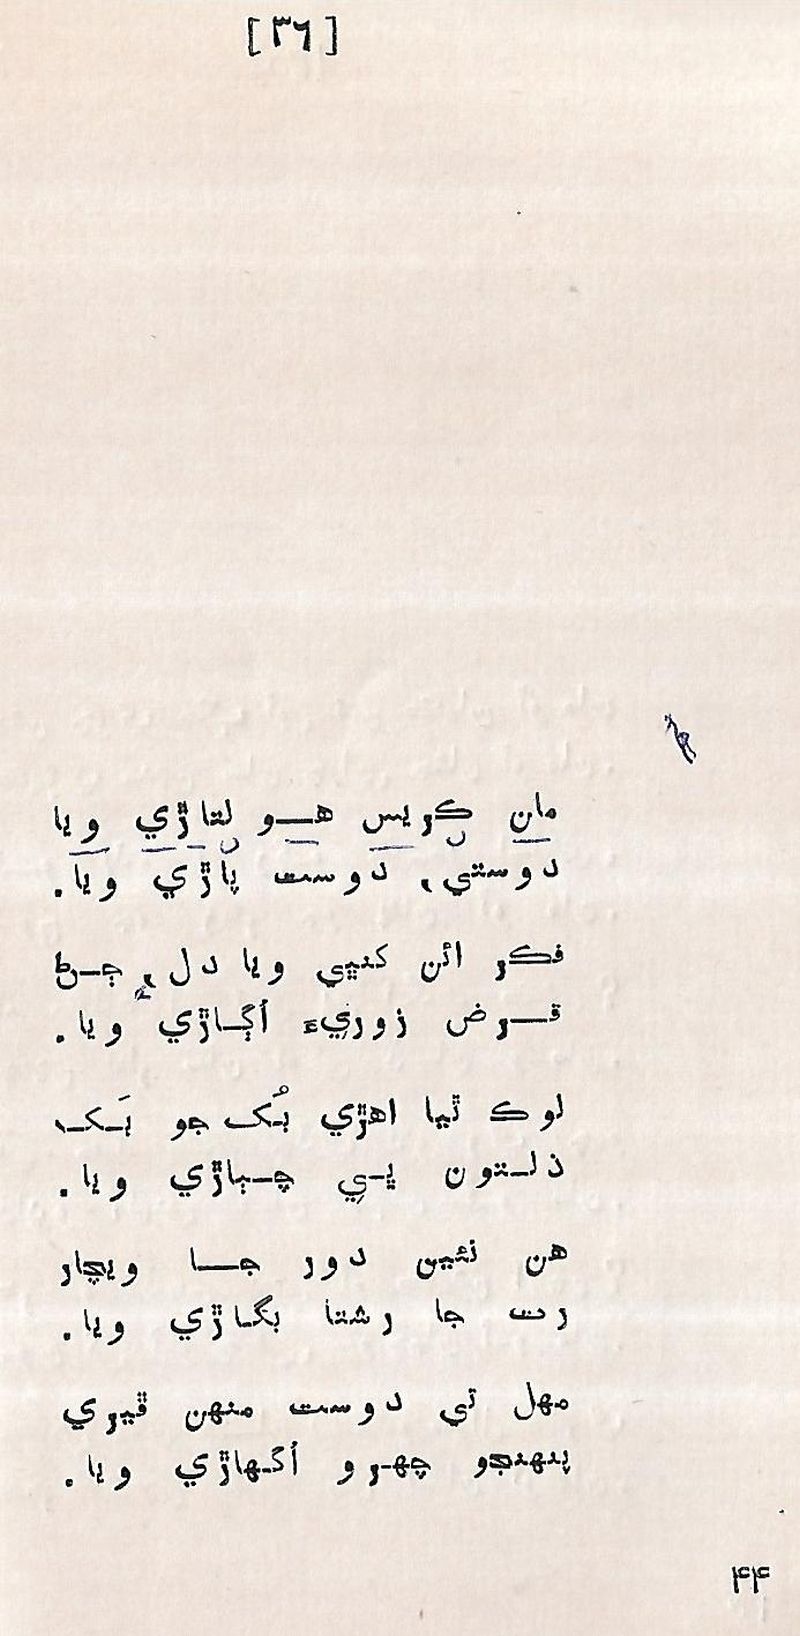 [۳٦]
مان ڪريس هو لتاڙي ويا
دوستي، دوست پاڙي ويا.
فڪر ائن کنيي ويا دل، ڄڻ
قرض زوريءَ اُڳاڙي ويا.
لوڪ ٿيا اهڙي بُک جو بَک
ذلتون پِي چٻاڙي ويا.
هن نئين دور جا ويچار
رت جا رشتا بگاڙي ويا.
مهل تي دوست منهن ڦيري
پنهنجو چهرو اُگهاڙي ويا.
۴۴